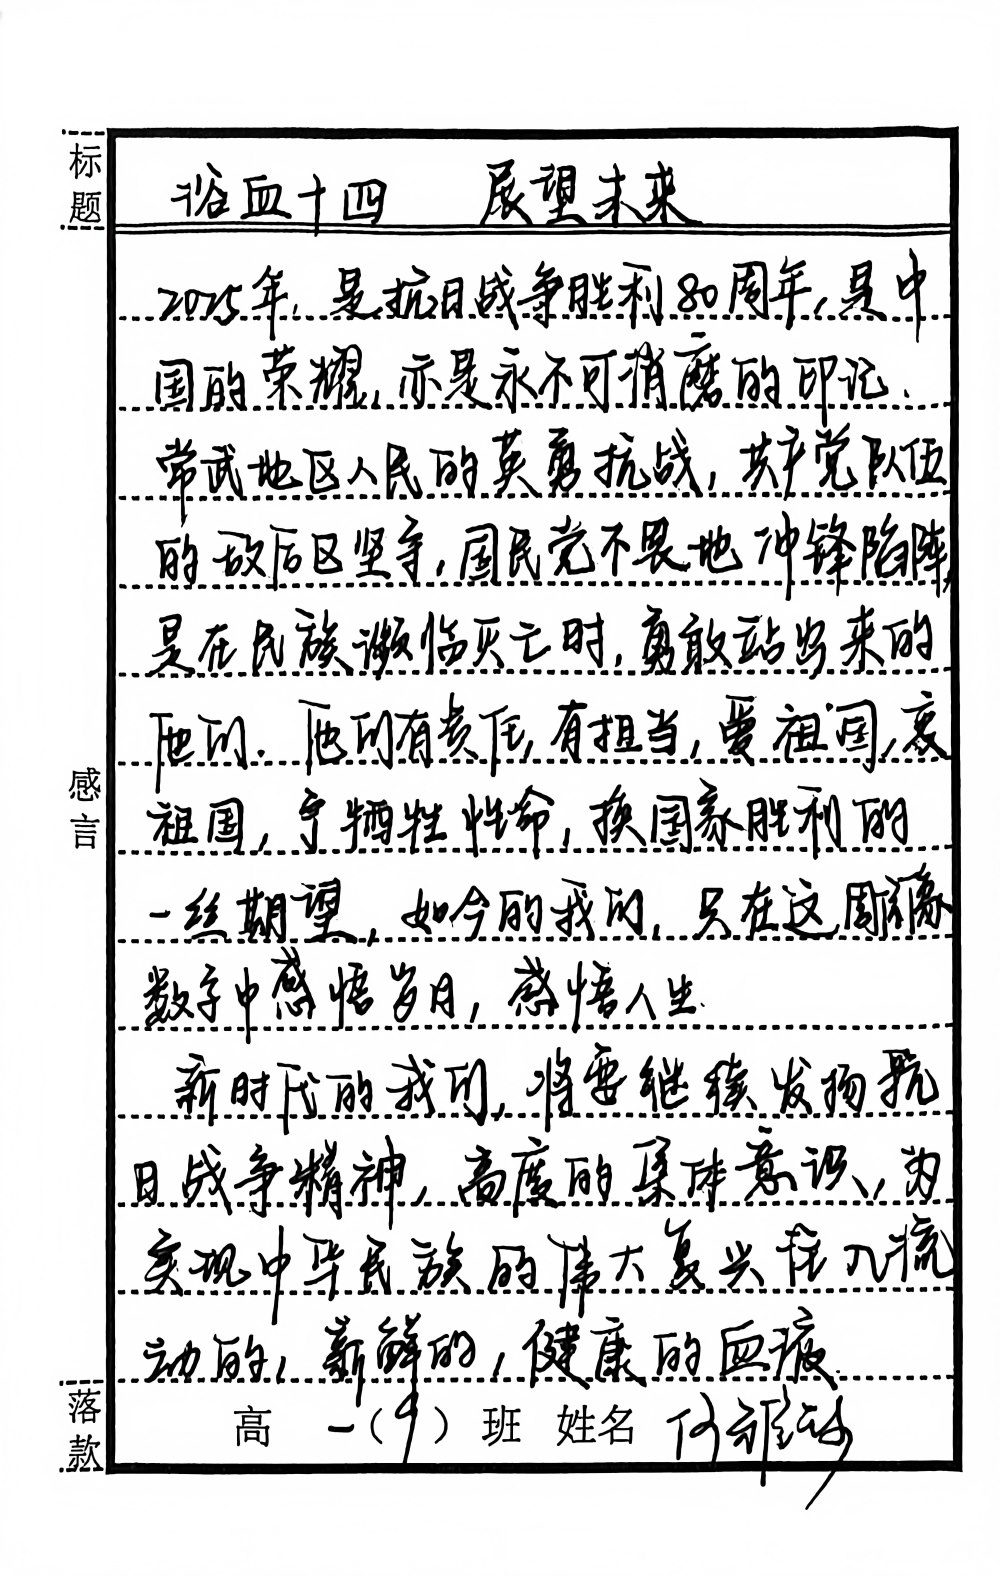 标题
浴血十四 展望未来
2025年,是抗日战争胜利80周年,是中
国的荣耀,亦是永不可消磨的印记.
常武地区人民的英勇抗战,共产党队伍
的敌后区坚守,国民党不畏地冲锋陷阵,
是在民族濒临灭亡时,勇敢站出来的
他们.他们有责任,有担当,爱祖国,爱
祖国,宁牺牲性命,换国家胜利的
一丝期望,如今的我们,只在这周
数字中感悟岁月,感悟人生.
新时代的我们,将要继续发扬抗
日战争精神,高度的集体意识,为
实现中华民族的伟大复兴注入流
动的,新鲜的,健康的血液.
感言
落款
高一(9)班 姓名 何